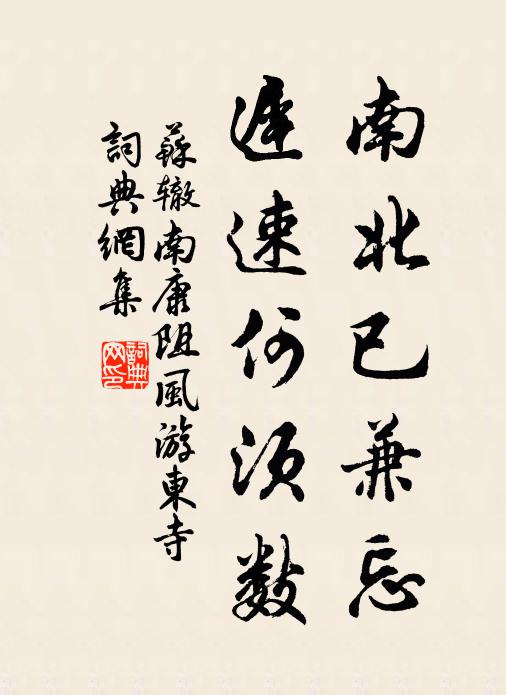 南北已兼忘
遲速何須數
蘇轍南康阻風游東寺
詞典網集
詞典網印